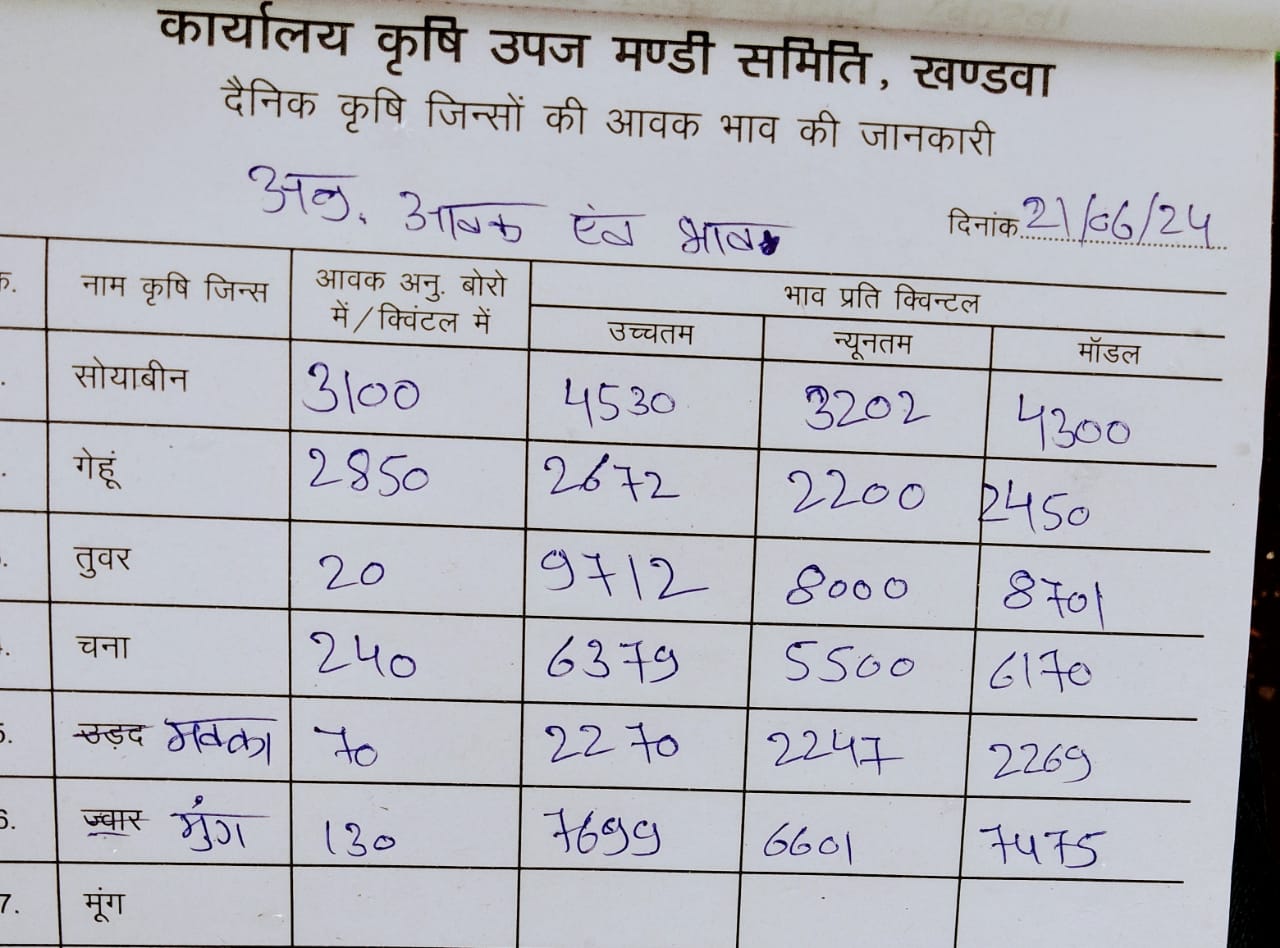 कार्यालय कृषि उपज मण्डी समिति, खण्डवा
दैनिक कृषि जिन्सों की आवक भाव की जानकारी
अनु. आवक एंव भाव
दिनांक 21/06/24
क्र. नाम कृषि जिन्स आवक अनु. बोरो में/क्विंटल में भाव प्रति क्विन्टल
उच्चतम न्यूनतम मॉडल
सोयाबीन 3100 4530 3202 4300
गेहूं 2850 2672 2200 2450
तुवर 20 9712 8000 8701
चना 240 6379 5500 6170
5. उड़द मक्का 70 2270 2247 2269
6. ज्वार मुंग 130 7699 6601 7475
7. मूंग